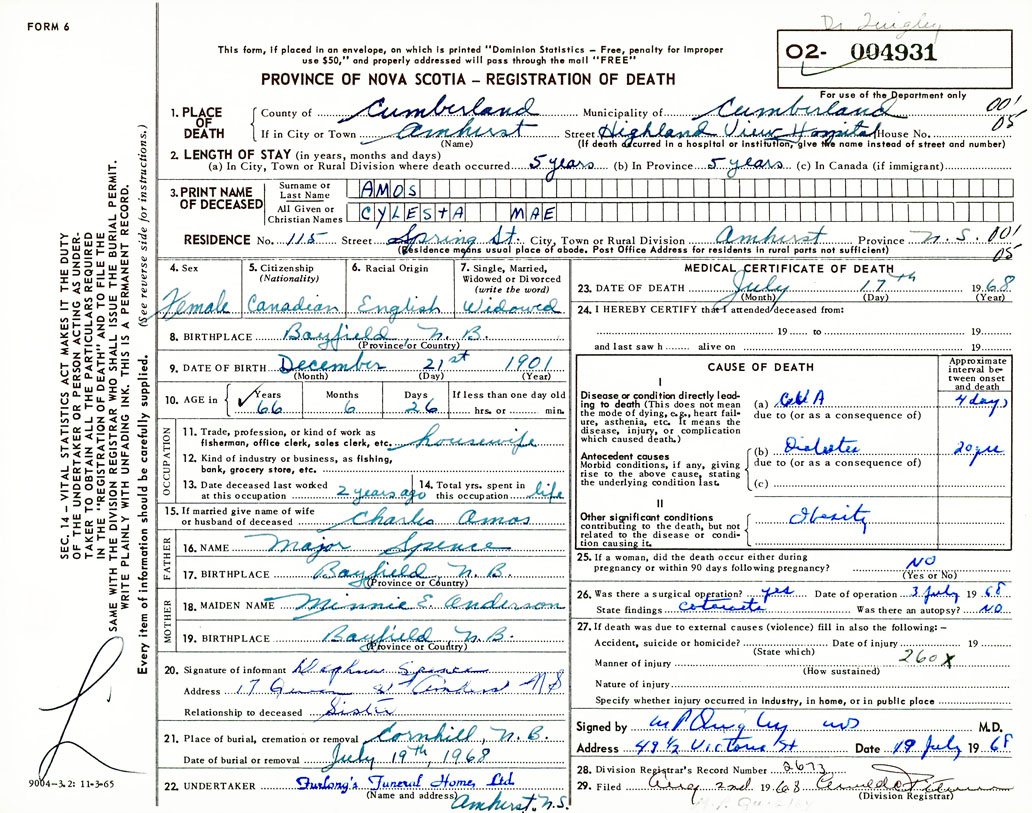 FORM 6
Dr Quigley
This form, if placed in an envelope, on which is printed "Dominion Statistics — Free, penalty for improper
use $50," and properly addressed will pass through the mail "FREE"
PROVINCE OF NOVA SCOTIA — REGISTRATION OF DEATH
02- 004931
For use of the Department only
1. PLACE OF DEATH
County of Cumberland Municipality of Cumberland 001
05
If in City or Town Amherst Street Highland View Hospital House No.
(Name) (If death occurred in a hospital or institution, give the name instead of street and number)
2. LENGTH OF STAY (in years, months and days)
(a) In City, Town or Rural Division where death occurred 5 years (b) In Province 5 years (c) In Canada (if immigrant)
3. PRINT NAME OF DECEASED
Surname or Last Name AMOS
All Given or Christian Names CYLESTA MAE
RESIDENCE No. 115 Street Spring St. City, Town or Rural Division Amherst Province N.S. 001
05
(Residence means usual place of abode. Post Office Address for residents in rural parts not sufficient)
4. Sex
Female
5. Citizenship (Nationality)
Canadian
6. Racial Origin
English
7. Single, Married, Widowed or Divorced (write the word)
Widowed
8. BIRTHPLACE Bayfield N.B.
(Province or Country)
9. DATE OF BIRTH December 21st 1901
(Month) (Day) (Year)
10. AGE in Years Months Days If less than one day old
✓ 66 6 26 hrs. or min.
OCCUPATION
11. Trade, profession, or kind of work as
fisherman, office clerk, sales clerk, etc. housewife
12. Kind of industry or business, as fishing,
bank, grocery store, etc.
13. Date deceased last worked at this occupation 2 years ago
14. Total yrs. spent in this occupation life
15. If married give name of wife
or husband of deceased Charles Amos
FATHER
16. NAME Major Spence
17. BIRTHPLACE Bayfield N.B.
(Province or Country)
MOTHER
18. MAIDEN NAME Minnie E. Anderson
19. BIRTHPLACE Bayfield N.B.
(Province or Country)
20. Signature of informant Spence
Address 17 St Amherst NS
Relationship to deceased Sister
21. Place of burial, cremation or removal Cornhill, N.B.
Date of burial or removal July 19th, 1968
22. UNDERTAKER Furlong's Funeral Home, Ltd
(Name and address) Amherst, N.S.
MEDICAL CERTIFICATE OF DEATH
23. DATE OF DEATH July 17th 1968
(Month) (Day) (Year)
24. I HEREBY CERTIFY that I attended deceased from:
19 to 19
and last saw h alive on 19
CAUSE OF DEATH
Approximate interval between onset and death
I
Disease or condition directly leading
to death (This does not mean
the mode of dying, e.g., heart failure,
asthenia, etc. It means the
disease, injury, or complication
which caused death.)
(a) 4 day)
due to (or as a consequence of)
Antecedent causes
Morbid conditions, if any, giving
rise to the above cause, stating
the underlying condition last.
(b) Diabetes 20 yrs
due to (or as a consequence of)
(c)
II
Other significant conditions
contributing to the death, but not
related to the disease or condition
causing it.
Obesity
25. If a woman, did the death occur either during
pregnancy or within 90 days following pregnancy? NO
(Yes or No)
26. Was there a surgical operation? yes Date of operation 3 July 1968
State findings Was there an autopsy? NO
27. If death was due to external causes (violence) fill in also the following:—
Accident, suicide or homicide? Date of injury 19
(State which)
Manner of injury 260X
(How sustained)
Nature of injury
Specify whether injury occurred in industry, in home, or in public place
Signed by M P Quigley MD M.D.
Address 49 1/2 Victoria St Date 19 July 1968
28. Division Registrar's Record Number 2673
29. Filed Aug 2nd 1968
(Division Registrar)
SEC. 14 — VITAL STATISTICS ACT MAKES IT THE DUTY
OF THE UNDERTAKER OR PERSON ACTING AS UNDERTAKER
TO OBTAIN ALL THE PARTICULARS REQUIRED
IN THE "REGISTRATION OF DEATH" AND TO FILE THE
SAME WITH THE DIVISION REGISTRAR WHO SHALL ISSUE THE BURIAL PERMIT.
WRITE PLAINLY WITH UNFADING INK. THIS IS A PERMANENT RECORD.
Every item of information should be carefully supplied. (See reverse side for instructions.)
9004—3.2: 11-3-65